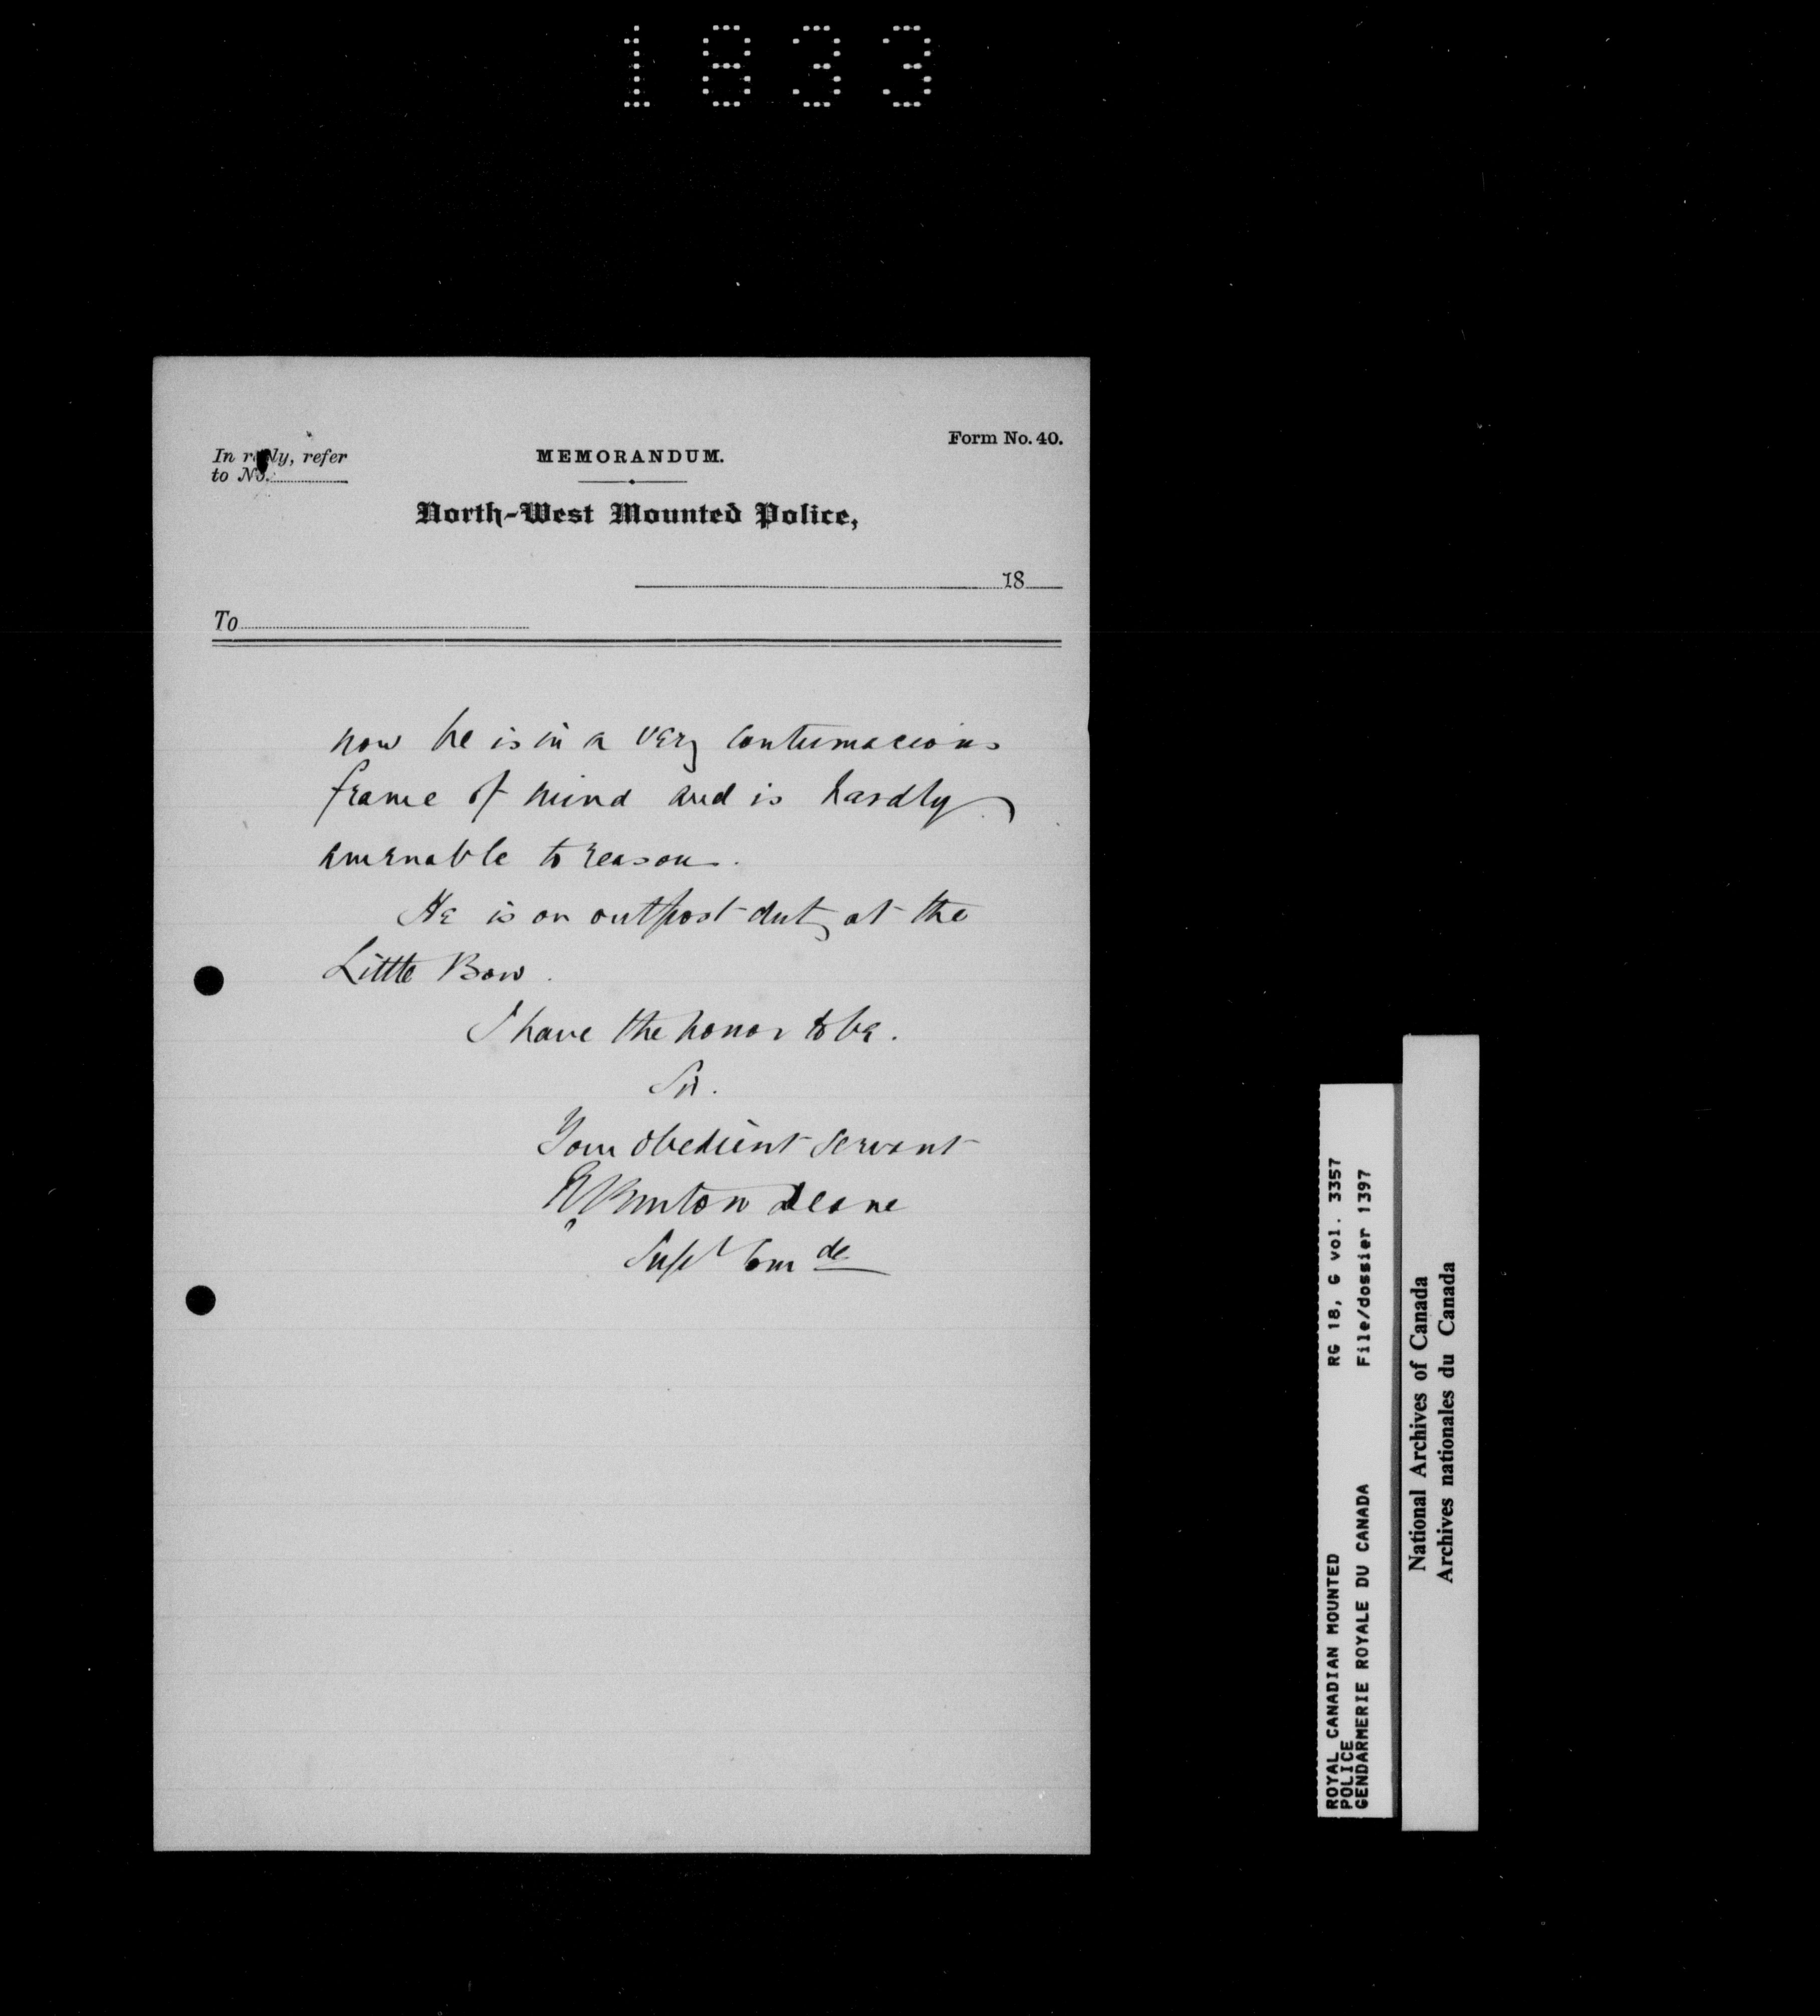 1833
Form No. 40.
In reply, refer
to No.
MEMORANDUM.
North-West Mounted Police,
18
To
now he is in a very contumacious
frame of mind and is hardly
amenable to reason.
He is on outpost duty at the
Little Bow.
I have the honor to be.
Sir.
Your obedient servant
R Burton Deane
Supt Comde
RG 18, G vol. 3357
File/dossier 1397
ROYAL CANADIAN MOUNTED
POLICE
GENDARMERIE ROYALE DU CANADA
National Archives of Canada
Archives nationales du Canada